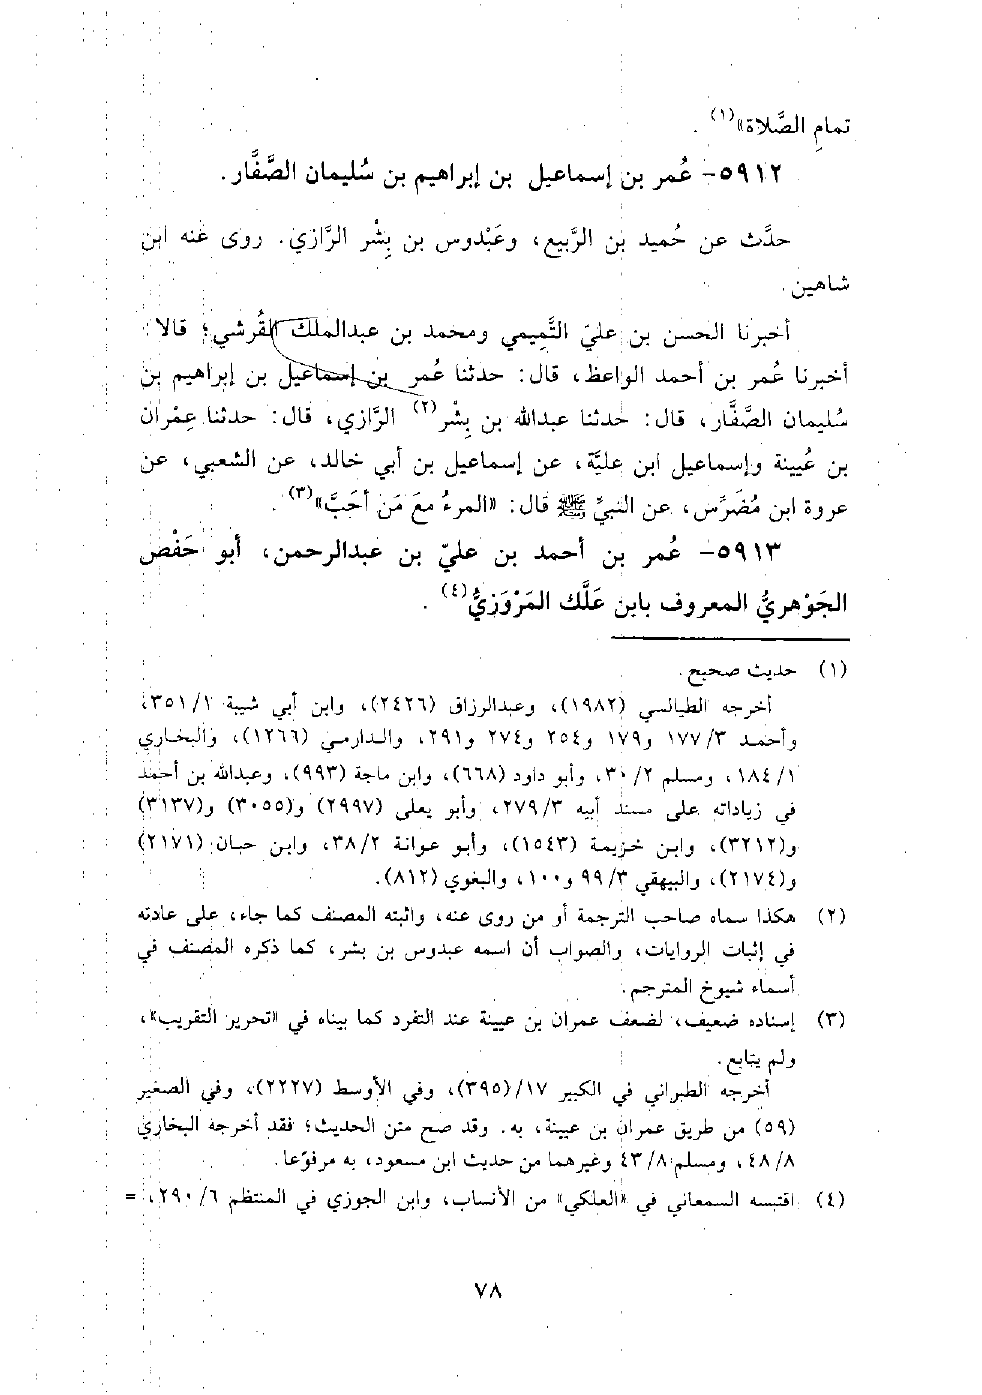 تمامِ الصَّلاة»(١) .
٥٩١٢- عُمر بن إسماعيل بن إبراهيم بن سُليمان الصَّفَّار.
حدَّث عن حُميد بن الرَّبيع، وعَبْدوس بن بِشْر الرَّازي. روى عنه ابن
شاهين.
أخبرنا الحسن بن عليّ التَّمِيمي ومحمد بن عبدالملك القُرشي؛ قالا:
أخبرنا عُمر بن أحمد الواعظ، قال: حدثنا عُمر بن إسماعيل بن إبراهيم بن
سُليمان الصَّفَّار، قال: حدثنا عبدالله بن بِشْر(٢) الرَّازي، قال: حدثنا عِمْران
بن عُيينة وإسماعيل ابن عليَّة، عن إسماعيل بن أبي خالد، عن الشعبي، عن
عروة ابن مُضَرِّس، عن النبيِّ ﷺ قال: «المرءُ مَعَ مَن أحَبَّ»(٣) .
٥٩١٣- عُمر بن أحمد بن عليّ بن عبدالرحمن، أبو حَفْص
الجَوْهريُّ المعروف بابن عَلَّك المَرْوَزيُّ(٤) .
(١) حديث صحيح.
أخرجه الطيالسي (١٩٨٢)، وعبدالرزاق (٢٤٢٦)، وابن أبي شيبة ٣٥١/١،
وأحمد ١٧٧/٣ و١٧٩ و٢٥٤ و٢٧٤ و٢٩١، والدارمي (١٢٦٦)، والبخاري
١٨٤/١، ومسلم ٣٠/٢، وأبو داود (٦٦٨)، وابن ماجة (٩٩٣)، وعبدالله بن أحمد
في زياداته على مسند أبيه ٢٧٩/٣، وأبو يعلى (٢٩٩٧) و(٣٠٥٥) و(٣١٣٧)
و(٣٢١٢)، وابن خزيمة (١٥٤٣)، وأبو عوانة ٣٨/٢، وابن حبان (٢١٧١)
و(٢١٧٤)، والبيهقي ٩٩/٣ و١٠٠، والبغوي (٨١٢).
(٢) هكذا سماه صاحب الترجمة أو من روى عنه، واثبته المصنف كما جاء، على عادته
في إثبات الروايات، والصواب أن اسمه عبدوس بن بشر، كما ذكره المصنف في
أسماء شيوخ المترجم.
(٣) إسناده ضعيف، لضعف عمران بن عيينة عند التفرد كما بيناه في «تحرير التقريب»،
ولم يتابع.
أخرجه الطبراني في الكبير ١٧/(٣٩٥)، وفي الأوسط (٢٢٢٧)، وفي الصغير
(٥٩) من طريق عمران بن عيينة، به. وقد صح متن الحديث؛ فقد أخرجه البخاري
٤٨/٨، ومسلم ٤٣/٨ وغيرهما من حديث ابن مسعود، به مرفوعا.
(٤) اقتبسه السمعاني في «العلكي» من الأنساب، وابن الجوزي في المنتظم ٢٩٠/٦، =
٧٨